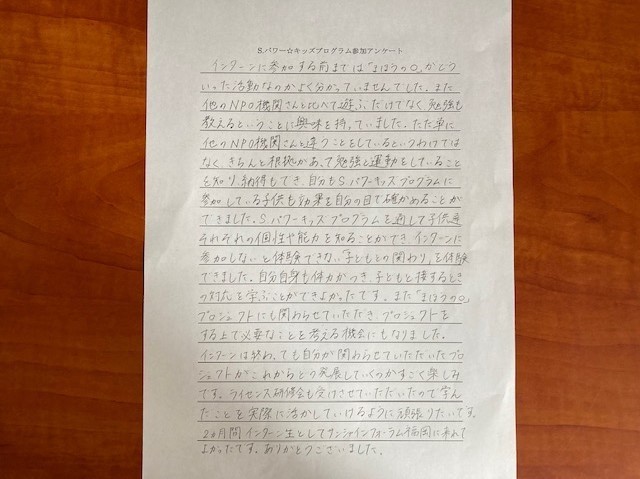 S.パワー☆キッズプログラム参加アンケート
インターンに参加する前までは「まほうの〇」がどう
いった活動なのかよく分かっていませんでした。また
他のNPO機関さんと比べて遊ぶだけでなく、勉強も
教えるということに興味を持っていました。ただ単に
他のNPO機関さんと違うことをしているというわけでは
なく、きちんと根拠があって勉強と運動をしていること
を知り、納得もでき、自分もS.パワーキッズプログラムに
参加している子供も効果を自分の目で確かめることが
できました。S.パワーキッズプログラムを通して子供達
それぞれの個性や能力を知ることができ、インターンに
参加しないと体験できない「子どもとの関わり」を体験
できました。自分自身も体力がつき、子どもと接するとき
の対応を学ぶことができよかったです。また「まほうの〇」
プロジェクトにも関わらせていただき、プロジェクトを
する上で必要なことを考える機会にもなりました。
インターンは終わっても自分が関わらせていただいたプロ
ジェクトがこれからどう発展していくのかすごく楽しみ
です。ライセンス研修会も受けさせていただいたので学ん
だことを実際に活かしていけるように頑張りたいです。
2ヶ月間インターン生としてサンシャインフォーラム福岡に来れて
よかったです。ありがとうございました。